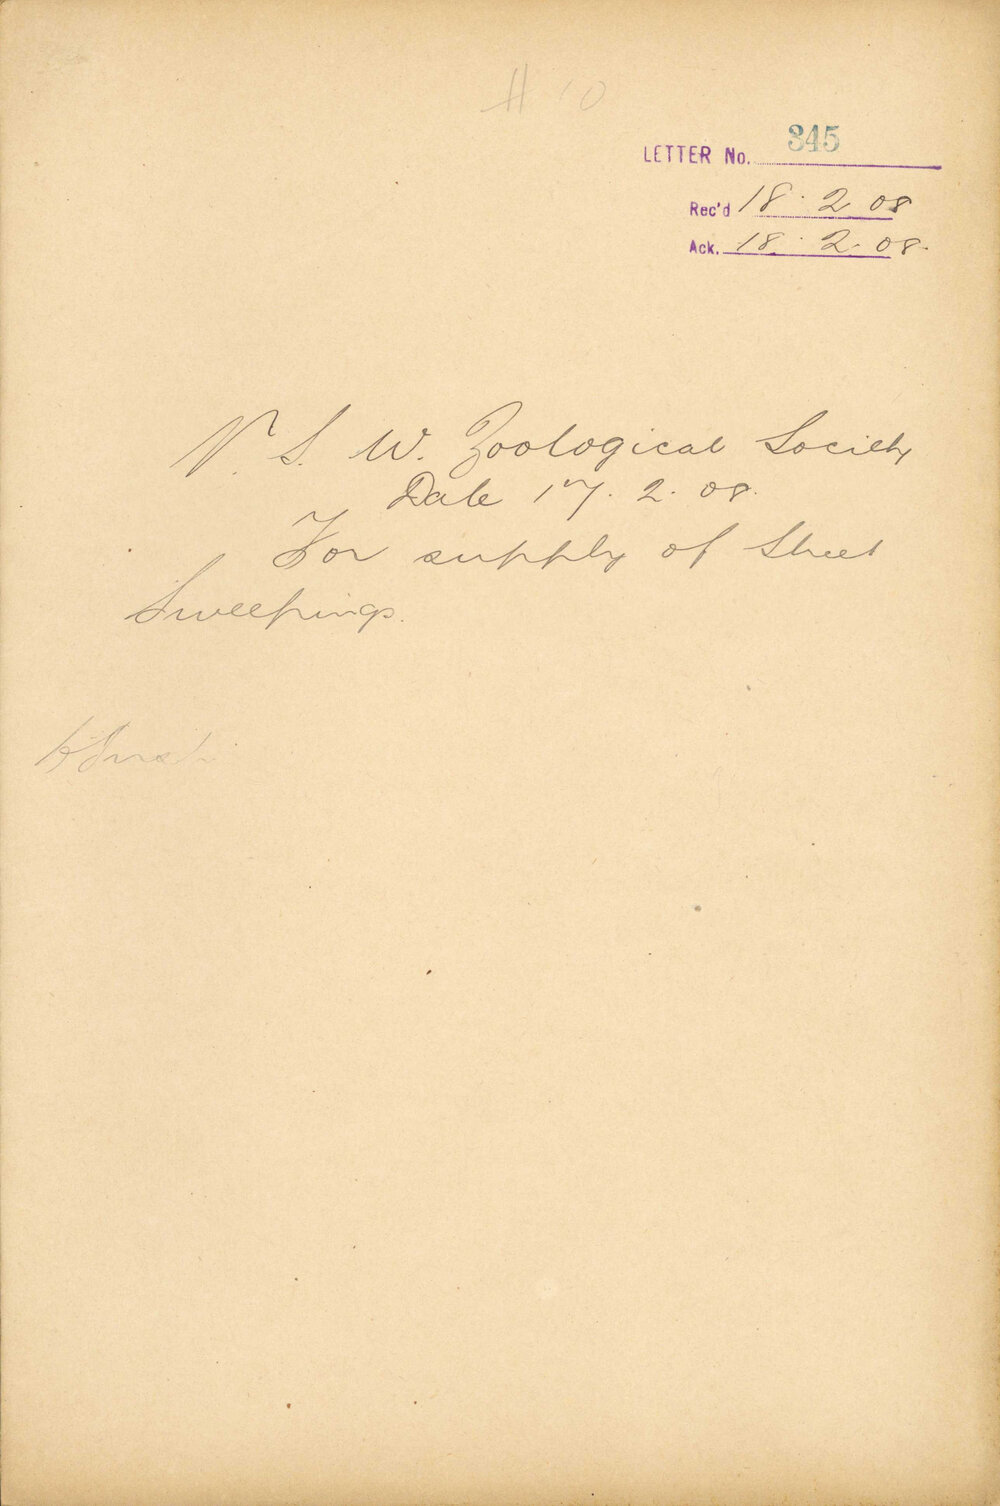 H 10
LETTER No. 345
Rec'd 18. 2 08
Ack. 18. 2. 08.
N. S. W. Zoological Society
Date 17. 2. 08.
For supply of Street
Sweepings.